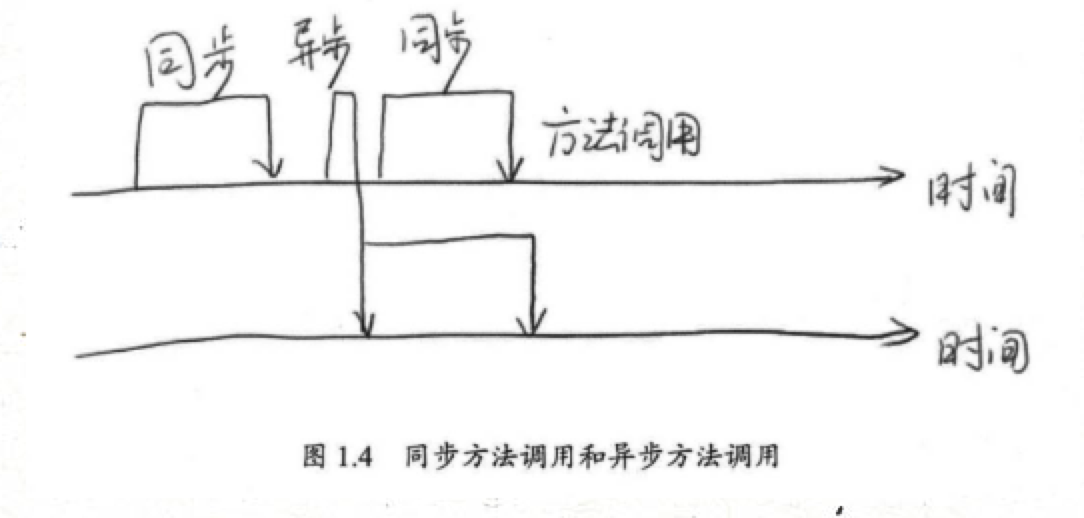 同步 异步 同步
方法调用
时间
时间
图 1.4 同步方法调用和异步方法调用